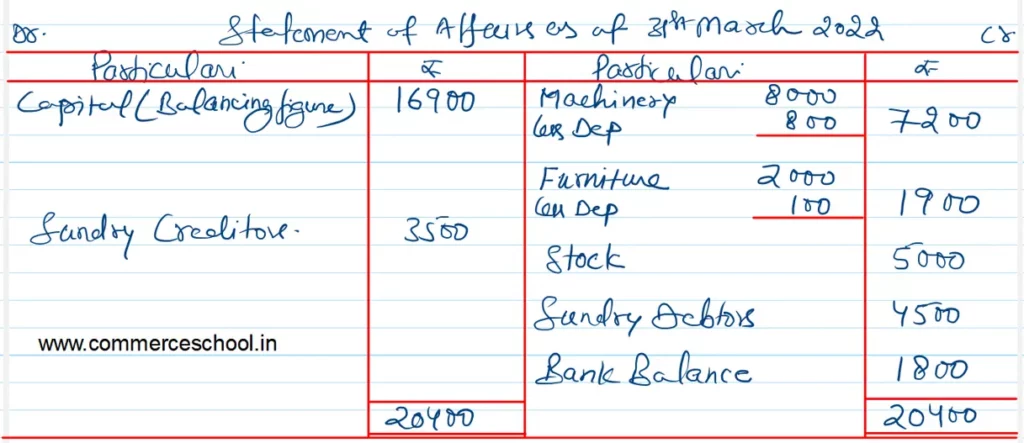 Dr. Statement of Affairs as of 31st March 2022 Cr
Particulars ₹ Particulars ₹
Capital (Balancing figure) 16900 Machinery 8000
Less Dep 800 7200
Furniture 2000
Less Dep 100 1900
Sundry Creditors. 3500
Stock 5000
Sundry Debtors 4500
www.commerceschool.in
Bank Balance 1800
20400 20400